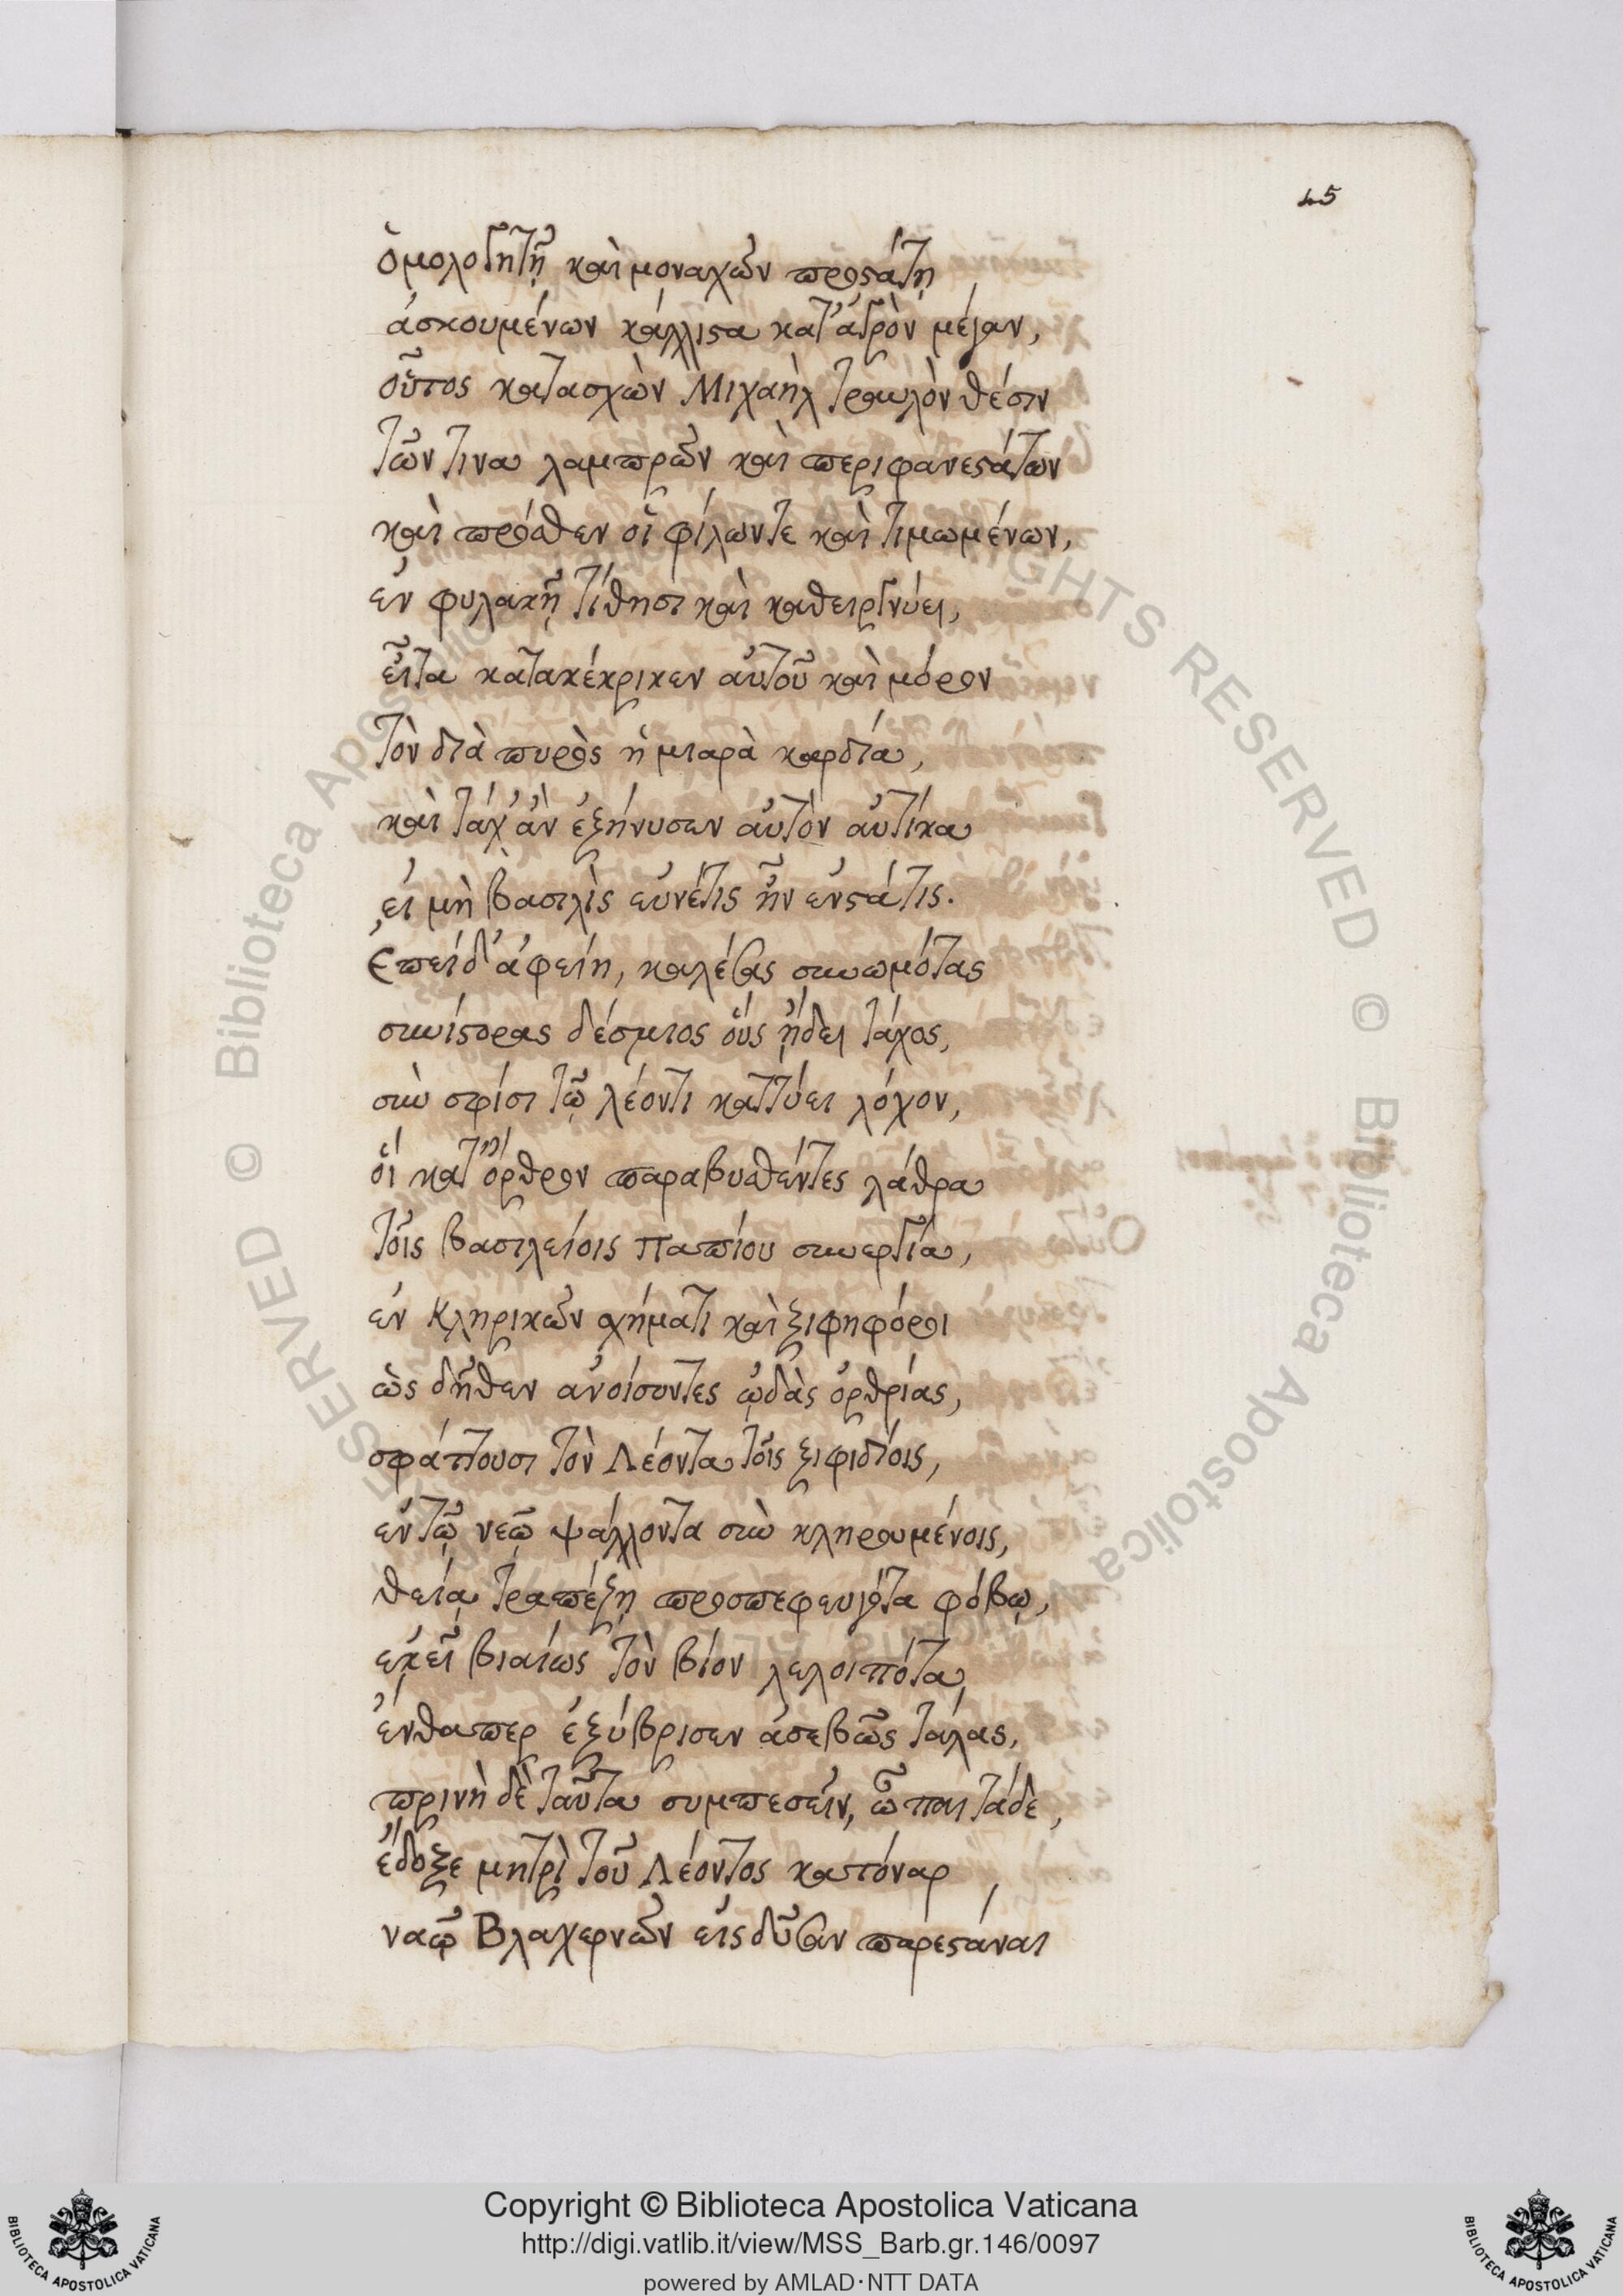 45
ὁμολογητῇ καὶ μοναχῶν προστάτῃ
ἀσκουμένων κάλλιστα κατ' ἀγρὸν μέγαν,
οὗτος κατασχὼν Μιχαὴλ τραυλὸν θέσιν
τῶν τινα λαμπρῶν καὶ περιφανεστάτων
καὶ πρόσθεν οἱ φίλων τε καὶ τιμωμένων,
ἐν φυλακῇ τίθησι καὶ καθειργνύει,
εἶτα κατακέκρικεν αὐτοῦ καὶ μόρον
τὸν διὰ πυρὸς ἡ μιαρὰ καρδία,
καὶ τάχ' ἂν ἐξήνυσεν αὐτὸν αὐτίκα
εἰ μὴ βασιλὶς εὐνέτις ἦν ἐνστάτις.
Ἐπεὶ δ' ἀφείη, καλέσας συνωμότας
συνίστορας δέσμιος οὓς ᾔδει τάχος,
σὺν σφίσι τῷ λέοντι καττύει λόχον,
οἳ κατ' ὄρθρον παραβυσθέντες λάθρα
τοῖς βασιλείοις Παπίου συνεργίᾳ,
ἐν Κληρικῶν σχήματι καὶ ξιφηφόροι
ὡς δῆθεν ἀνοίσοντες ᾠδὰς ὀρθρίας,
σφάττουσι τὸν Λέοντα τοῖς ξιφιδίοις,
ἐν τῷ νεῷ ψάλλοντα σὺν κληρουμένοις,
θείᾳ τραπέζῃ προσπεφευγότα φόβῳ,
ἐκεῖ βιαίως τὸν βίον λελοιπότα,
ἔνθαπερ ἐξύβρισεν ἀσεβῶς τάλας,
πρινὴ δὲ ταῦτα συμπεσεῖν, ὦ παῖ τάδε,
ἔδοξε μητρὶ τοῦ Λέοντος κατόναρ
ναῷ Βλαχερνῶν εἰσδῦσαν παρεστάναι
Copyright © Biblioteca Apostolica Vaticana
http://digi.vatlib.it/view/MSS_Barb.gr.146/0097
powered by AMLAD·NTT DATA